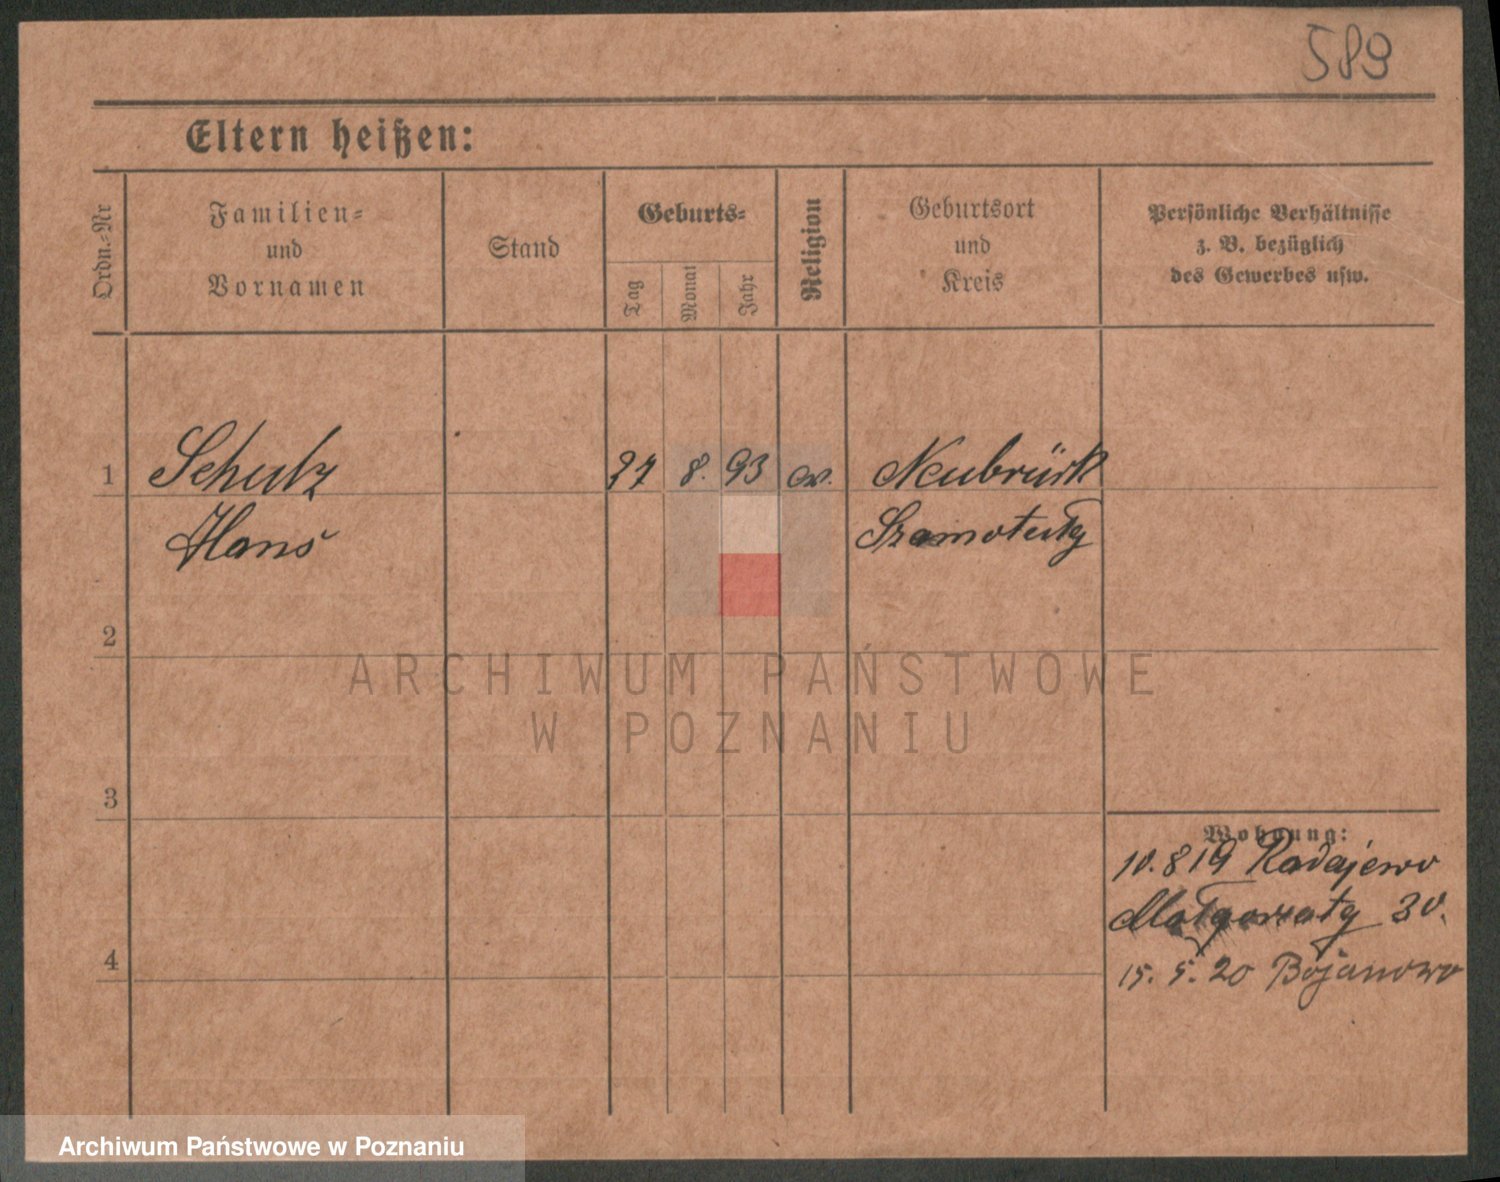 589
Eltern heißen:
Ordn.-Nr
Familien-
und
Vornamen
Stand
Geburts-
Tag
Monat
Jahr
Religion
Geburtsort
und
Kreis
Persönliche Verhältnisse
z. B. bezüglich
des Gewerbes usw.
1 Schulz 27 8. 93 ev. Neubrück
Hans Szamotuły
2
ARCHIWUM PAŃSTWOWE
W POZNANIU
3
Wohnung:
10.8 19 Radajewo
Małgorzaty 30.
4
15. 5. 20 Bojanowo
Archiwum Państwowe w Poznaniu